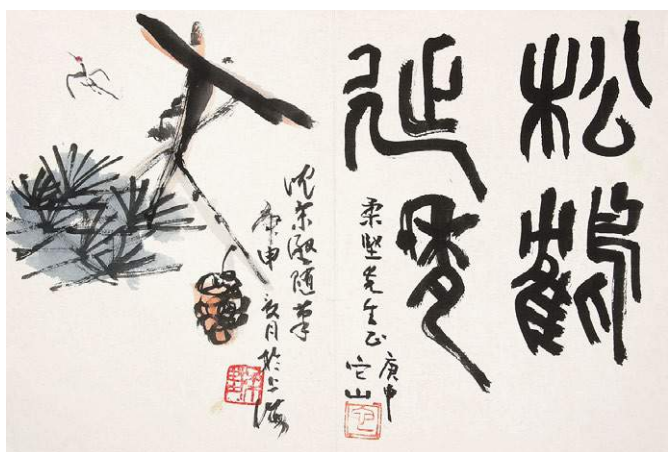 松鶴
延年
柔堅先生正
庚申
它山
沈柔堅随筆
庚申 月於上海